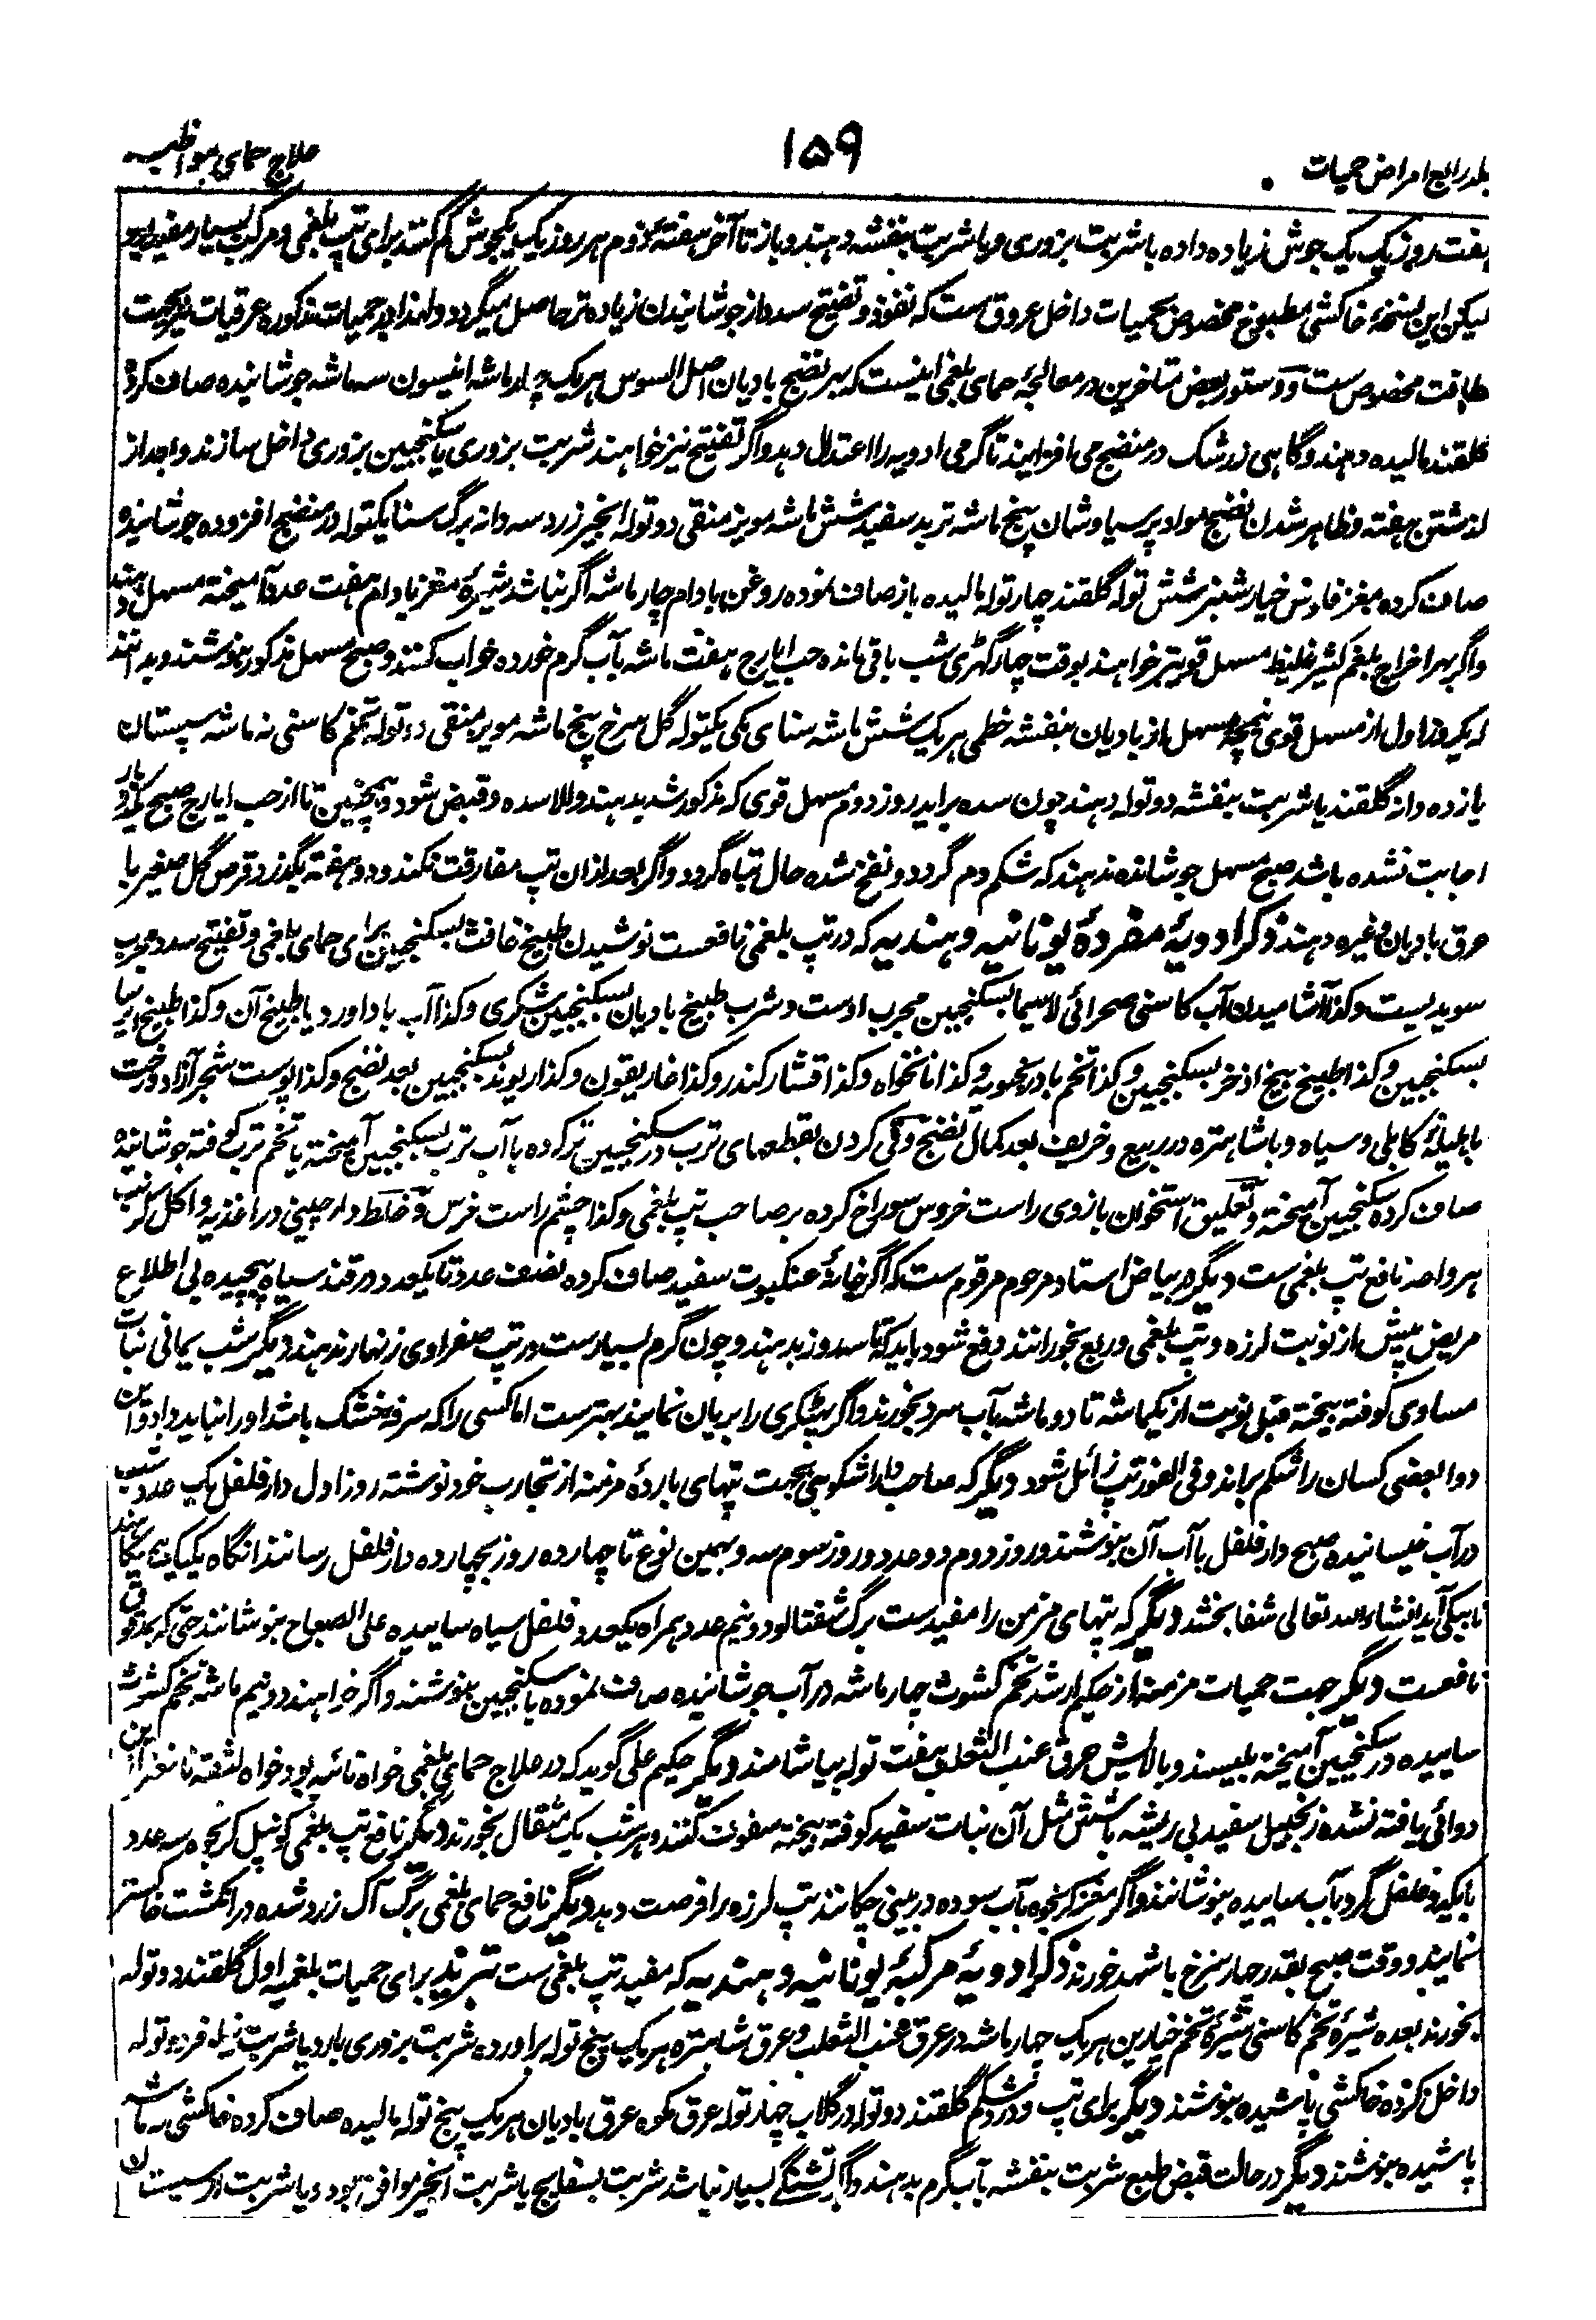 جلد رابع امراض حمیات
۱۵۹
علاج حمای مواظبه
هفت روز یک یک جوش زیاده داده با شربت بزوری و یا شربت بنفشه دهند و باز تا آخر هفتهٔ دوم هر روز یک یک جوش کم کنند برای تپ بلغمی و مرکب بسیار مفید
لیکن این نسخهٔ خاکشی مطبوخ مخصوص بحمیات داخل عروق ست که نفوذ و تفتیح سدد از جوشانیدن زیاده تر حاصل میگردد و لهذا در حمیات مذکوره عرقیات بجهت
طاقت مخصوص ست و دستور بعض متاخرین در معالجهٔ حمای بلغمی اینست که بهر نضج بادیان اصل السوس هر یک چار ماشه انیسون سه ماشه جوشانیده صاف کرده
گلقند مالیده دهند و گاهی زرشک در منضج می افزایند تا گرمی ادویه را اعتدال دهد و اگر تفتیح نیز خواهند شربت بزوری یا سکنجبین بزوری داخل سازند و بعد از
گذشتن هفته و ظاهر شدن نضج مواد پرسیاوشان پنج ماشه تربد سفید شش ماشه مویز منقی دو توله انجیر زرد سه دانه برگ سنا یکتوله در منضج افزوده جوشانیده
صاف کرده مغز فلوس خیارشنبر شش توله گلقند چار توله مالیده باز صاف نموده روغن بادام چار ماشه اگر نباشد شیرهٔ مغز بادام هفت عدد آمیخته مسهل دهند
و اگر بهر اخراج بلغم کثیر غلیظ مسهل قویتر خواهند بوقت چهار گهڑی شب باقی مانده حب ایارج هفت ماشه بآب گرم خورده خواب کنند و صبح مسهل مذکور بنوشند و بدانند
که یکروز اول از مسهل قوی نیمچه مسهل از بادیان بنفشه خطمی هر یک شش ماشه سنای مکی یکتوله گل سرخ پنج ماشه مویز منقی دو توله تخم کاسنی نه ماشه سپستان
یازده دانه گلقند یا شربت بنفشه دو توله دهند چون سده براید روز دوم مسهل قوی که مذکور شد بدهند والا سده و قبض شود و همچنین تا از حب ایارج صبح یکدو بار
اجابت نشده باشد صبح مسهل جوشانده ندهند که شکم دم گردد و نفخ شده حال تباه گردد و اگر بعد ازان تپ مفارقت نکند و دو هفته بگذرد قرص گل صغیر با
عرق بادیان وغیره دهند ذکر ادویهٔ مفردهٔ یونانیه و هندیه که در تپ بلغمی نافعست نوشیدن طبیخ غافث بسکنجبین برای حمای بلغمی و تفتیح سدد مجرب
سویدیست و کذا آشامیدن آب کاسنی صحرائی لاسیما بسکنجبین مجرب اوست و شرب طبیخ بادیان بسکنجبین شکری و کذا آب باداورد یا طبیخ آن و کذا طبیخ ایرسا
بسکنجبین و کذا طبیخ بیخ اذخر بسکنجبین و کذا تخم بادرنجبویه و کذا نانخواه و کذا قشار کندر و کذا غاریقون و کذا ریوند بسکنجبین بعد نضج و کذا پوست شجر آزاد درخت
با هلیلهٔ کابلی و سیاه و با شاهتره در ربیع و خریف بعد کمال نضج و قی کردن بقطعهای ترب در سکنجبین تر کرده یا آب ترب بسکنجبین آمیخته یا تخم ترب کوفته جوشانیده
صاف کرده سکنجبین آمیخته و تعلیق استخوان بازوی راست خروس سوراخ کرده بر صاحب تپ بلغمی و کذا چشم راست فرس و خلط دارچینی در اغذیه و اکل کرنب
هر واحد نافع تپ بلغمی ست دیگر در بیاض استاد مرحوم مرقوم ست که اگر خانهٔ عنکبوت سفید صاف کرده نصف عدد تا یکعدد در قند سیاه پیچیده بی اطلاع
مریض پیش از نوبت لرزه و تپ بلغمی و ربع بخورانند دفع شود باید که تا سه روز بدهند و چون گرم بسیارست در تپ صفراوی زنهار ندهند دیگر شب یمانی نبات
مساوی کوفته بیخته قبل نوبت از یکماشه تا دو ماشه بآب سرد بخورند و اگر پهٹکری را بریان نمایند بهترست اما کسی را که سرفهٔ خشک باشد او را نباید داد و این
دوا بعضی کسان را شکم براند و فی الفور تپ زائل شود دیگر که صاحب دارا شکوهی بجهت تپهای باردهٔ مزمنه از تجارب خود نوشته روز اول دار فلفل یک عدد شب
در آب خیسانیده صبح دار فلفل با آب آن بنوشند و روز دوم دو عدد و روز سوم سه و بهمین نوع تا چهارده روز بچهارده دار فلفل رسانند آنگاه یک یک کم میکنند
تا بیکی آید انشاء الله تعالی شفا بخشد دیگر که تپهای مزمن را مفیدست برگ شفتالو دو نیم عدد همراه یکعدد فلفل سیاه ساییده علی الصباح بنوشانند حتی که بمدقوق
نافعست دیگر جهت حمیات مزمنه از حکیم ارشد تخم کشوث چهار ماشه در آب جوشانیده صاف نموده با سکنجبین بنوشند و اگر خواهند دو نیم ماشه تخم کشوث
ساییده در سکنجبین آمیخته بلیسند و بالایش عرق عنب الثعلب هفت توله بیاشامند دیگر حکیم علی گوید که در علاج حمای بلغمی خواه نائبه بود خواه لثقه نافعتر از این
دوائی یافته نشده زنجبیل سفید بی ریشه با شش مثل آن نبات سفید کوفته بیخته سفوف کنند و هر شب یک مثقال بخورند دیگر نافع تپ بلغمی کونپل کرنجوه سه عدد
با یکدو فلفل گرد بآب ساییده بنوشانند و اگر مغز کرنجوه بآب سوده در بینی چکانند تپ لرزه را فرصت دهد دیگر نافع حمای بلغمی برگ آک زرد شده در انگشت خاکستر
نمایند و وقت صبح بقدر چهار سرخ با شهد خورند ذکر ادویهٔ مرکبهٔ یونانیه و هندیه که مفید تپ بلغمی ست تبرید برای حمیات بلغمیه اول گلقند دو توله
بخورند بعده شیرهٔ تخم کاسنی شیرهٔ تخم خیارین هر یک چهار ماشه در عرق عنب الثعلب و عرق شاهتره هر یک پنج توله برآورده شربت بزوری بارد یا شربت نیلوفر دو توله
داخل کرده خاکشی پاشیده بنوشند دیگر برای تپ و درد شکم گلقند دو توله در گلاب چهار توله عرق مکوه عرق بادیان هر یک پنج توله مالیده صاف کرده خاکشی سه ماشه
پاشیده بنوشند دیگر در حالت قبض طبع شربت بنفشه بآب گرم بدهند و اگر تشنگی بسیار نباشد شربت بسفایج یا شربت انجیر موافق بود و یا شربت